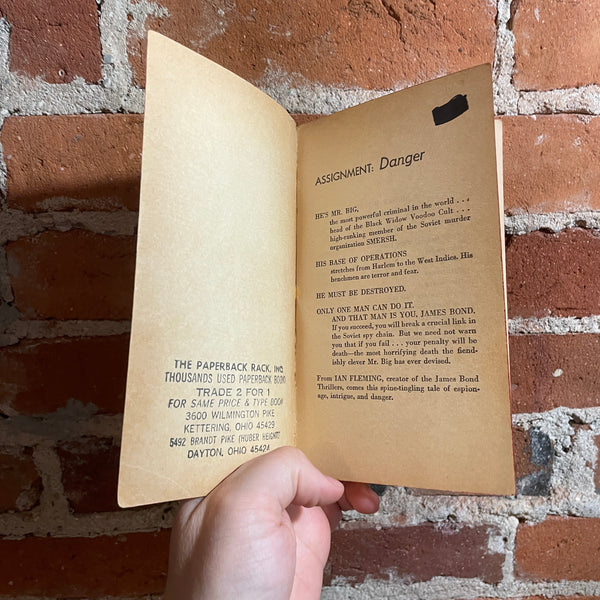 THE PAPERBACK RACK, INC.
THOUSANDS USED PAPERBACK BOOKS
TRADE 2 FOR 1
FOR SAME PRICE & TYPE BOOK
3600 WILMINGTON PIKE
KETTERING, OHIO 45429
5492 BRANDT PIKE (HUBER HEIGHTS)
DAYTON, OHIO 45424
ASSIGNMENT: Danger
HE'S MR. BIG,
the most powerful criminal in the world . . .
head of the Black Widow Voodoo Cult . . .
high-ranking member of the Soviet murder
organization SMERSH.
HIS BASE OF OPERATIONS
stretches from Harlem to the West Indies. His
henchmen are terror and fear.
HE MUST BE DESTROYED.
ONLY ONE MAN CAN DO IT.
AND THAT MAN IS YOU, JAMES BOND.
If you succeed, you will break a crucial link in
the Soviet spy chain. But we need not warn
you that if you fail . . . your penalty will be
death—the most horrifying death the fiend-
ibly clever Mr. Big has ever devised.
From IAN FLEMING, creator of the James Bond
Thrillers, comes this spine-tingling tale of espion-
age, intrigue, and danger.